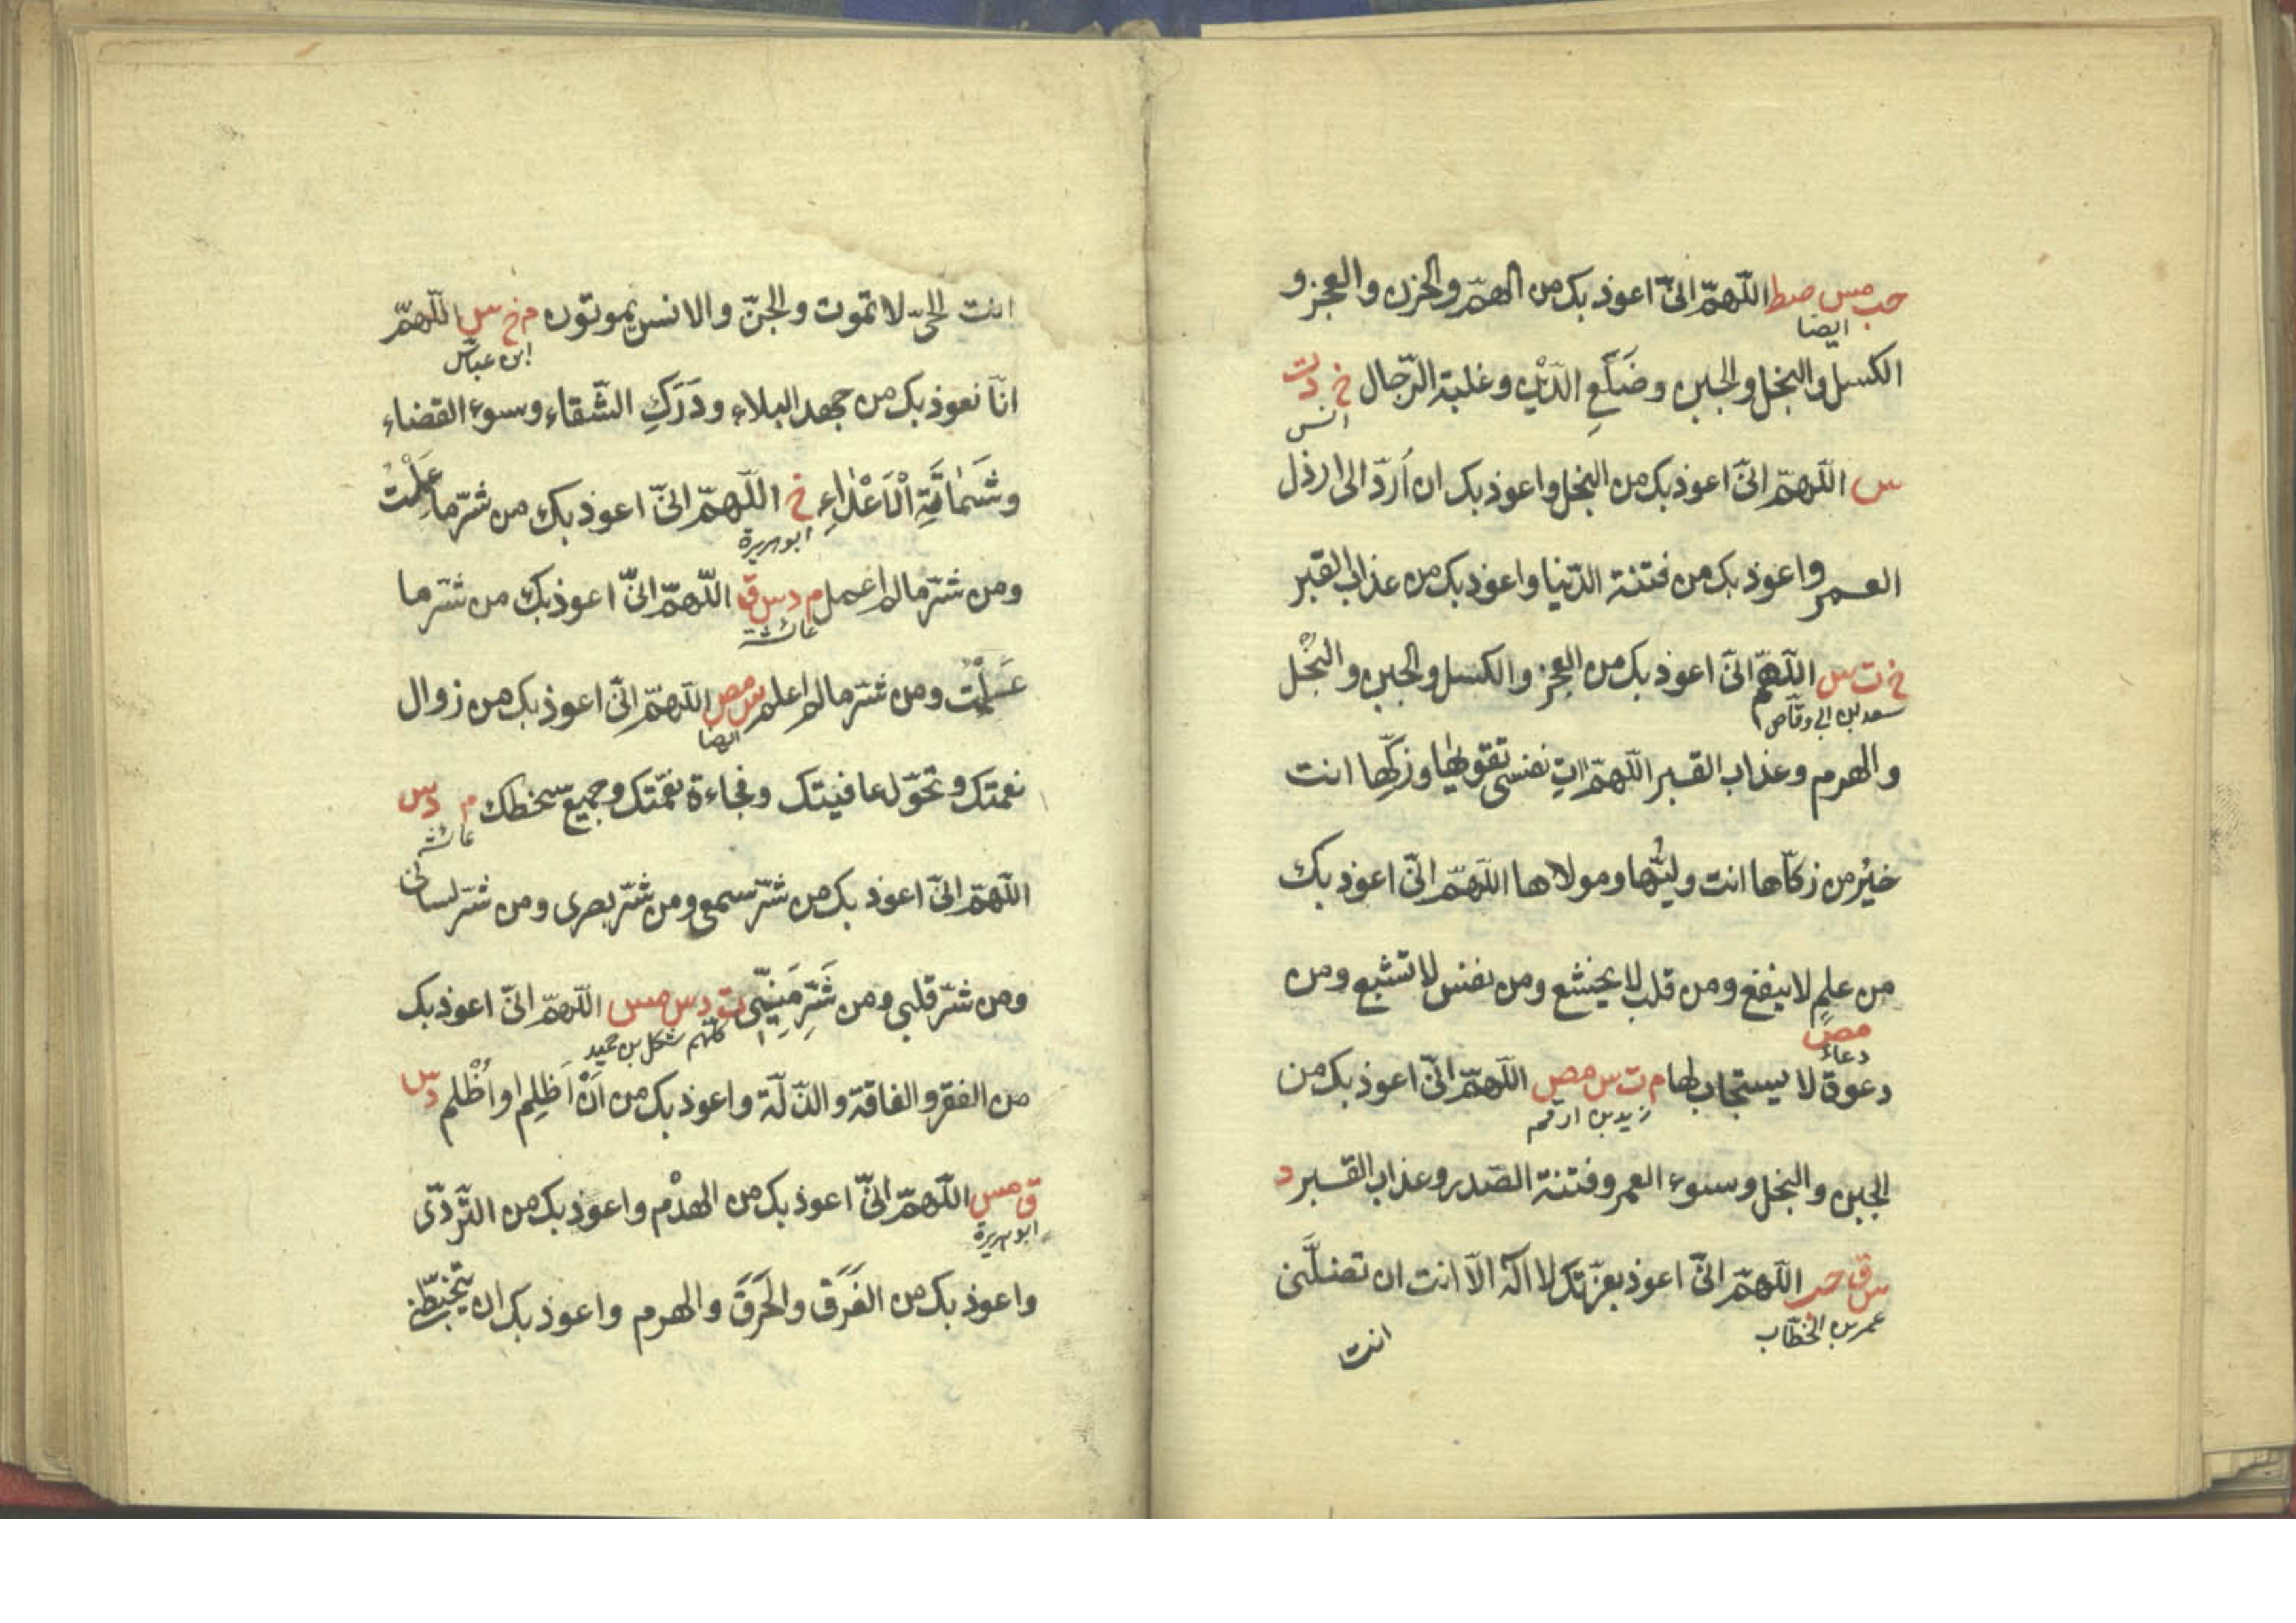 حب مس صط اللّهمّ انّى اعوذ بك من الهمّ والحزن والعجز و
ايضا
الكسل والبخل والجبن وضَلَعِ الدَّيْن وغلبة الرّجال خ د ت
انس
س اللّهمّ انّى اعوذ بك من البخل واعوذ بك ان اُردّ الى ارذل
العمر واعوذ بك من فتنة الدّنيا واعوذ بك من عذاب القبر
خ ت س اللّهمّ انّى اعوذ بك من العجز والكسل والجبن والبُخْل
سعد بن ابى وقّاص
والهرم وعذاب القبر اللّهمّ اٰتِ نفسى تقوٰىها وزكّها انت
خيْر من زكّاها انت وليُّها ومولاها اللّهمّ انّى اعوذ بك
من علمٍ لا ينفع ومن قلب لا يخشع ومن نفس لا تشبع ومن
مص
دعاء
دعوة لا يستجاب لها م ت س مص اللّهمّ انّى اعوذ بك من
زيد بن ارقم
الجبن والبخل وسوء العمر وفتنة الصّدر وعذاب القبر د
س ق حب اللّهمّ انّى اعوذ بعزّتك لا اله الّا انت ان تضلَّنى
عمر بن الخطّاب
انت
انت الحىّ لا تموت والجنّ والانس يموتون م خ س اللّهمّ
ابن عبّاس
انّا نعوذ بك من جهد البلاء ودَرَكِ الشّقاء وسوء القضاء
وشَمَاتَةِ اْلاَعْدَاءِ خ اللّهمّ انّى اعوذ بك من شرّ ما عَمِلْتُ
ابو هريرة
ومن شرّ ما لم اعمل م د س ق اللّهمّ انّى اعوذ بك من شرّ ما
عائشة
عَلِمْتُ ومن شرّ ما لم اعلم س مص اللّهمّ انّى اعوذ بك من زوال
ايضا
نعمتك وتحوّل عافيتك وفجاءة نقمتك وجميع سخطك م د س
عائشة
اللّهمّ انّى اعوذ بك من شرّ سمعى ومن شرّ بصرى ومن شرّ لسانى
ومن شرّ قلبى ومن شَرِّ مَنِيّى ت د س مس اللّهمّ انّى اعوذ بك
كلّهم شكل بن حميد
من الفقر والفاقة والذّلّة واعوذ بك من اَنْ اَظلِم او اُظْلم د س
ق مس اللّهمّ انّى اعوذ بك من الهدْم واعوذ بك من التَّردّى
ابو هريرة
واعوذ بك من الغَرَق والحَرَق والهرم واعوذ بك ان يتخبّطنى